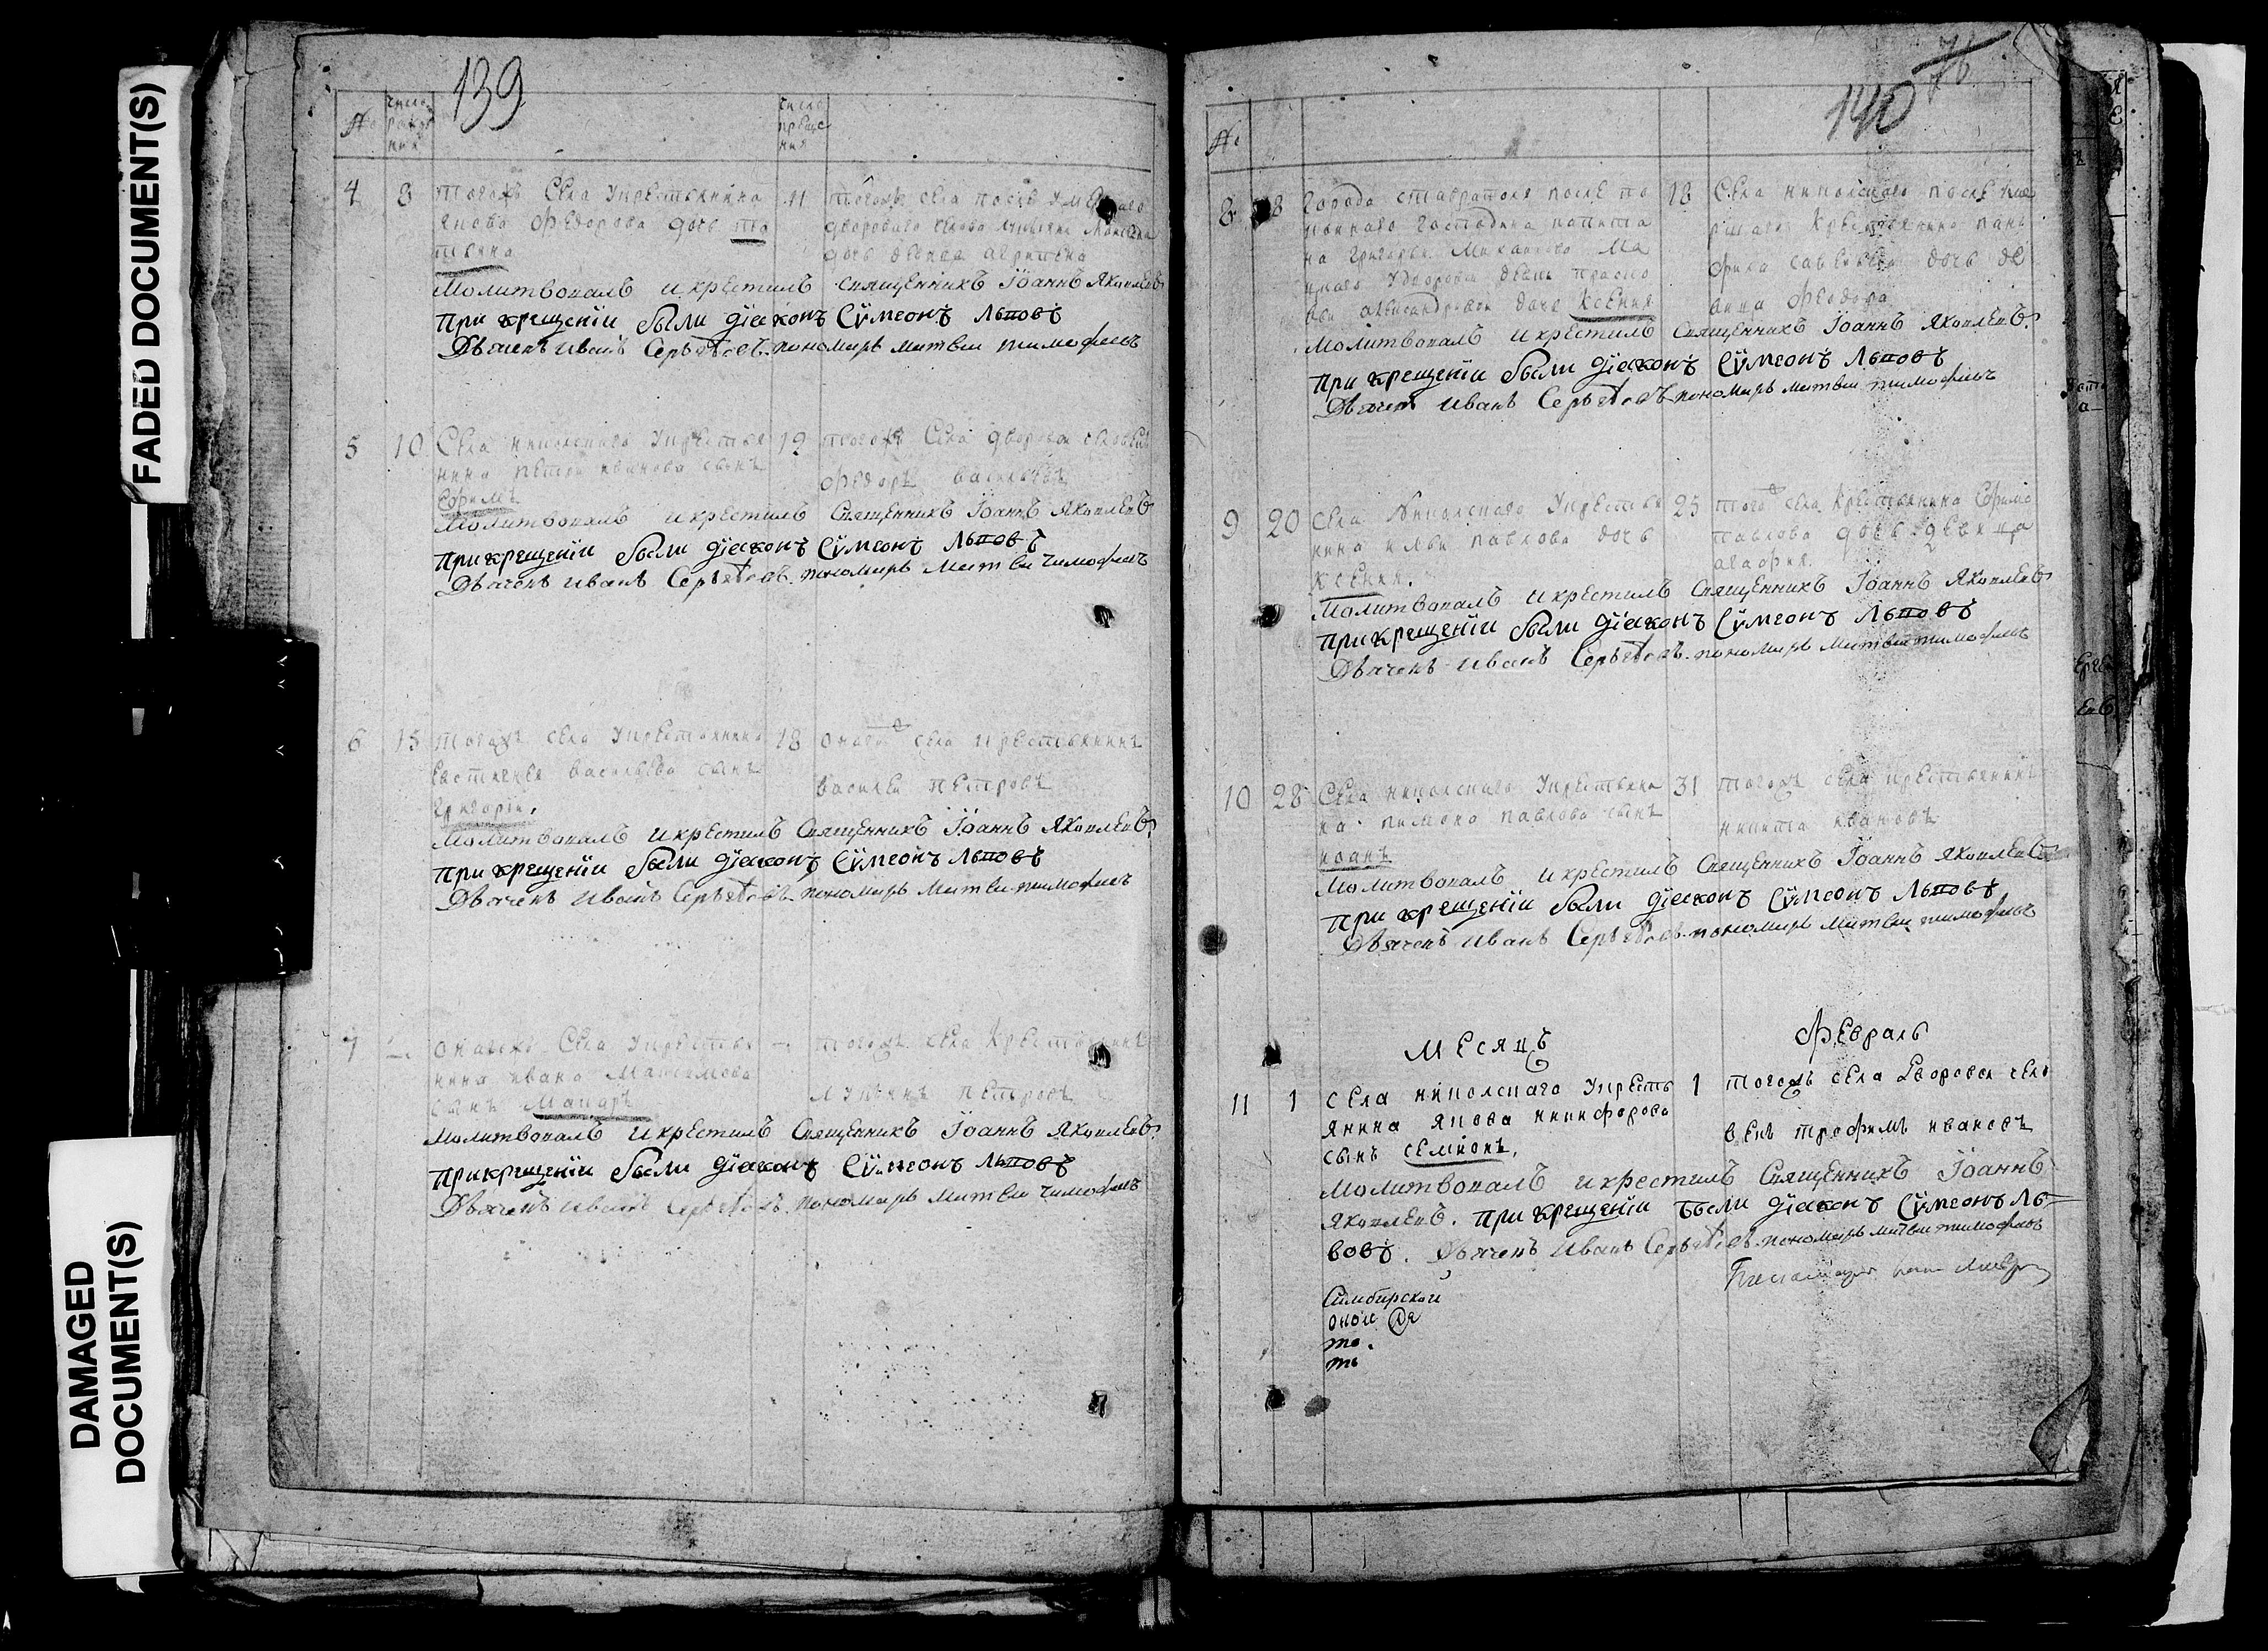 FADED DOCUMENT(S)
DAMAGED
DOCUMENT(S)
139
№ число рожде ния
число креще ния
4 8 тогожъ села укрестьянина
якова федорова дочь та
тьяна
11 тогожъ села после умершаго
двороваго
дочь девка
Молитвовалъ и крестилъ священникъ Iоаннъ Яковлевъ
При крещенiи были дiаконъ Сѵмеонъ Львовъ
Дьячекъ Иванъ Сергѣевъ пономарь матвеи тимофеевъ
5 10 Села никольскаго укрестья
нина петра иванова сынъ
Ефимъ
19 тогожъ села дворовой человекъ
федоръ васильевъ
Молитвовалъ и крестилъ Священникъ Iоаннъ Яковлевъ
При крещенiи были дiаконъ Сѵмеонъ Львовъ
Дьячекъ Иванъ Сергѣевъ пономарь Матвеи тимофеевъ
6 15 тогожъ села укрестьянина
евстигнея васильева сынъ
григорiи.
18 онагожъ села крестьянинъ
василеи петровъ
Молитвовалъ и крестилъ Священникъ Iоаннъ Яковлевъ
При крещенiи были дiаконъ Сѵмеонъ Львовъ
Дьячекъ Иванъ Сергѣевъ пономарь Матвеи тимофеевъ
7 — онагожъ села укрестья
нина ивана Максимова
сынъ Макаръ
— тогожъ села крестьянинъ
лукьянъ петровъ
Молитвовалъ и крестилъ Священникъ Iоаннъ Яковлевъ
При крещенiи были дiаконъ Сѵмеонъ Львовъ
Дьячекъ Иванъ Сергѣевъ пономарь матвеи тимофеевъ
76
140
№
8 18 города ставраполя после по
койнаго господина капита
на григорья Михаилова
удворовой девки праско
вьи александровой дочь Ксения
18 Села никольскаго после уме
ршаго крестьянина пан
фила савельева дочь де
вица Феодора
Молитвовалъ и крестилъ Священникъ Iоаннъ Яковлевъ.
При крещенiи были дiаконъ Сѵмеонъ Львовъ
Дьячекъ Иванъ Сергѣевъ пономарь матвеи тимофеевъ
9 20 села никольскаго укрестья
нина ильи павлова дочь
Ксения.
25 тогожъ села крестьянина Ефима
павлова дочь девица
агафия.
Молитвовалъ и крестилъ Священникъ Iоаннъ Яковлевъ
При крещенiи были дiаконъ Сѵмеонъ Львовъ
Дьячекъ Иванъ Сергѣевъ пономарь Матвеи тимофеевъ
10 28 Села никольскаго укрестьяни
на пимона павлова сынъ
иоанъ
31 тогожъ села крестьянинъ
никита ивановъ
Молитвовалъ и крестилъ Священникъ Iоаннъ Яковлевъ
При крещенiи были дiаконъ Сѵмеонъ Львовъ
Дьячекъ Иванъ Сергѣевъ пономарь Матвеи тимофеевъ
Месяцъ Февраль
11 1 села никольскаго укресть
янина якова никифорова
сынъ семионъ.
1 тогожъ села дворовой чело
векъ трофимъ ивановъ
Молитвовалъ и крестилъ Священникъ Iоаннъ
Яковлевъ. При крещенiи были дiаконъ Сѵмеонъ Ль
вовъ. Дьячекъ Иванъ Сергѣевъ пономарь матвеи тимофеевъ
Симбирской
оной
то.
то